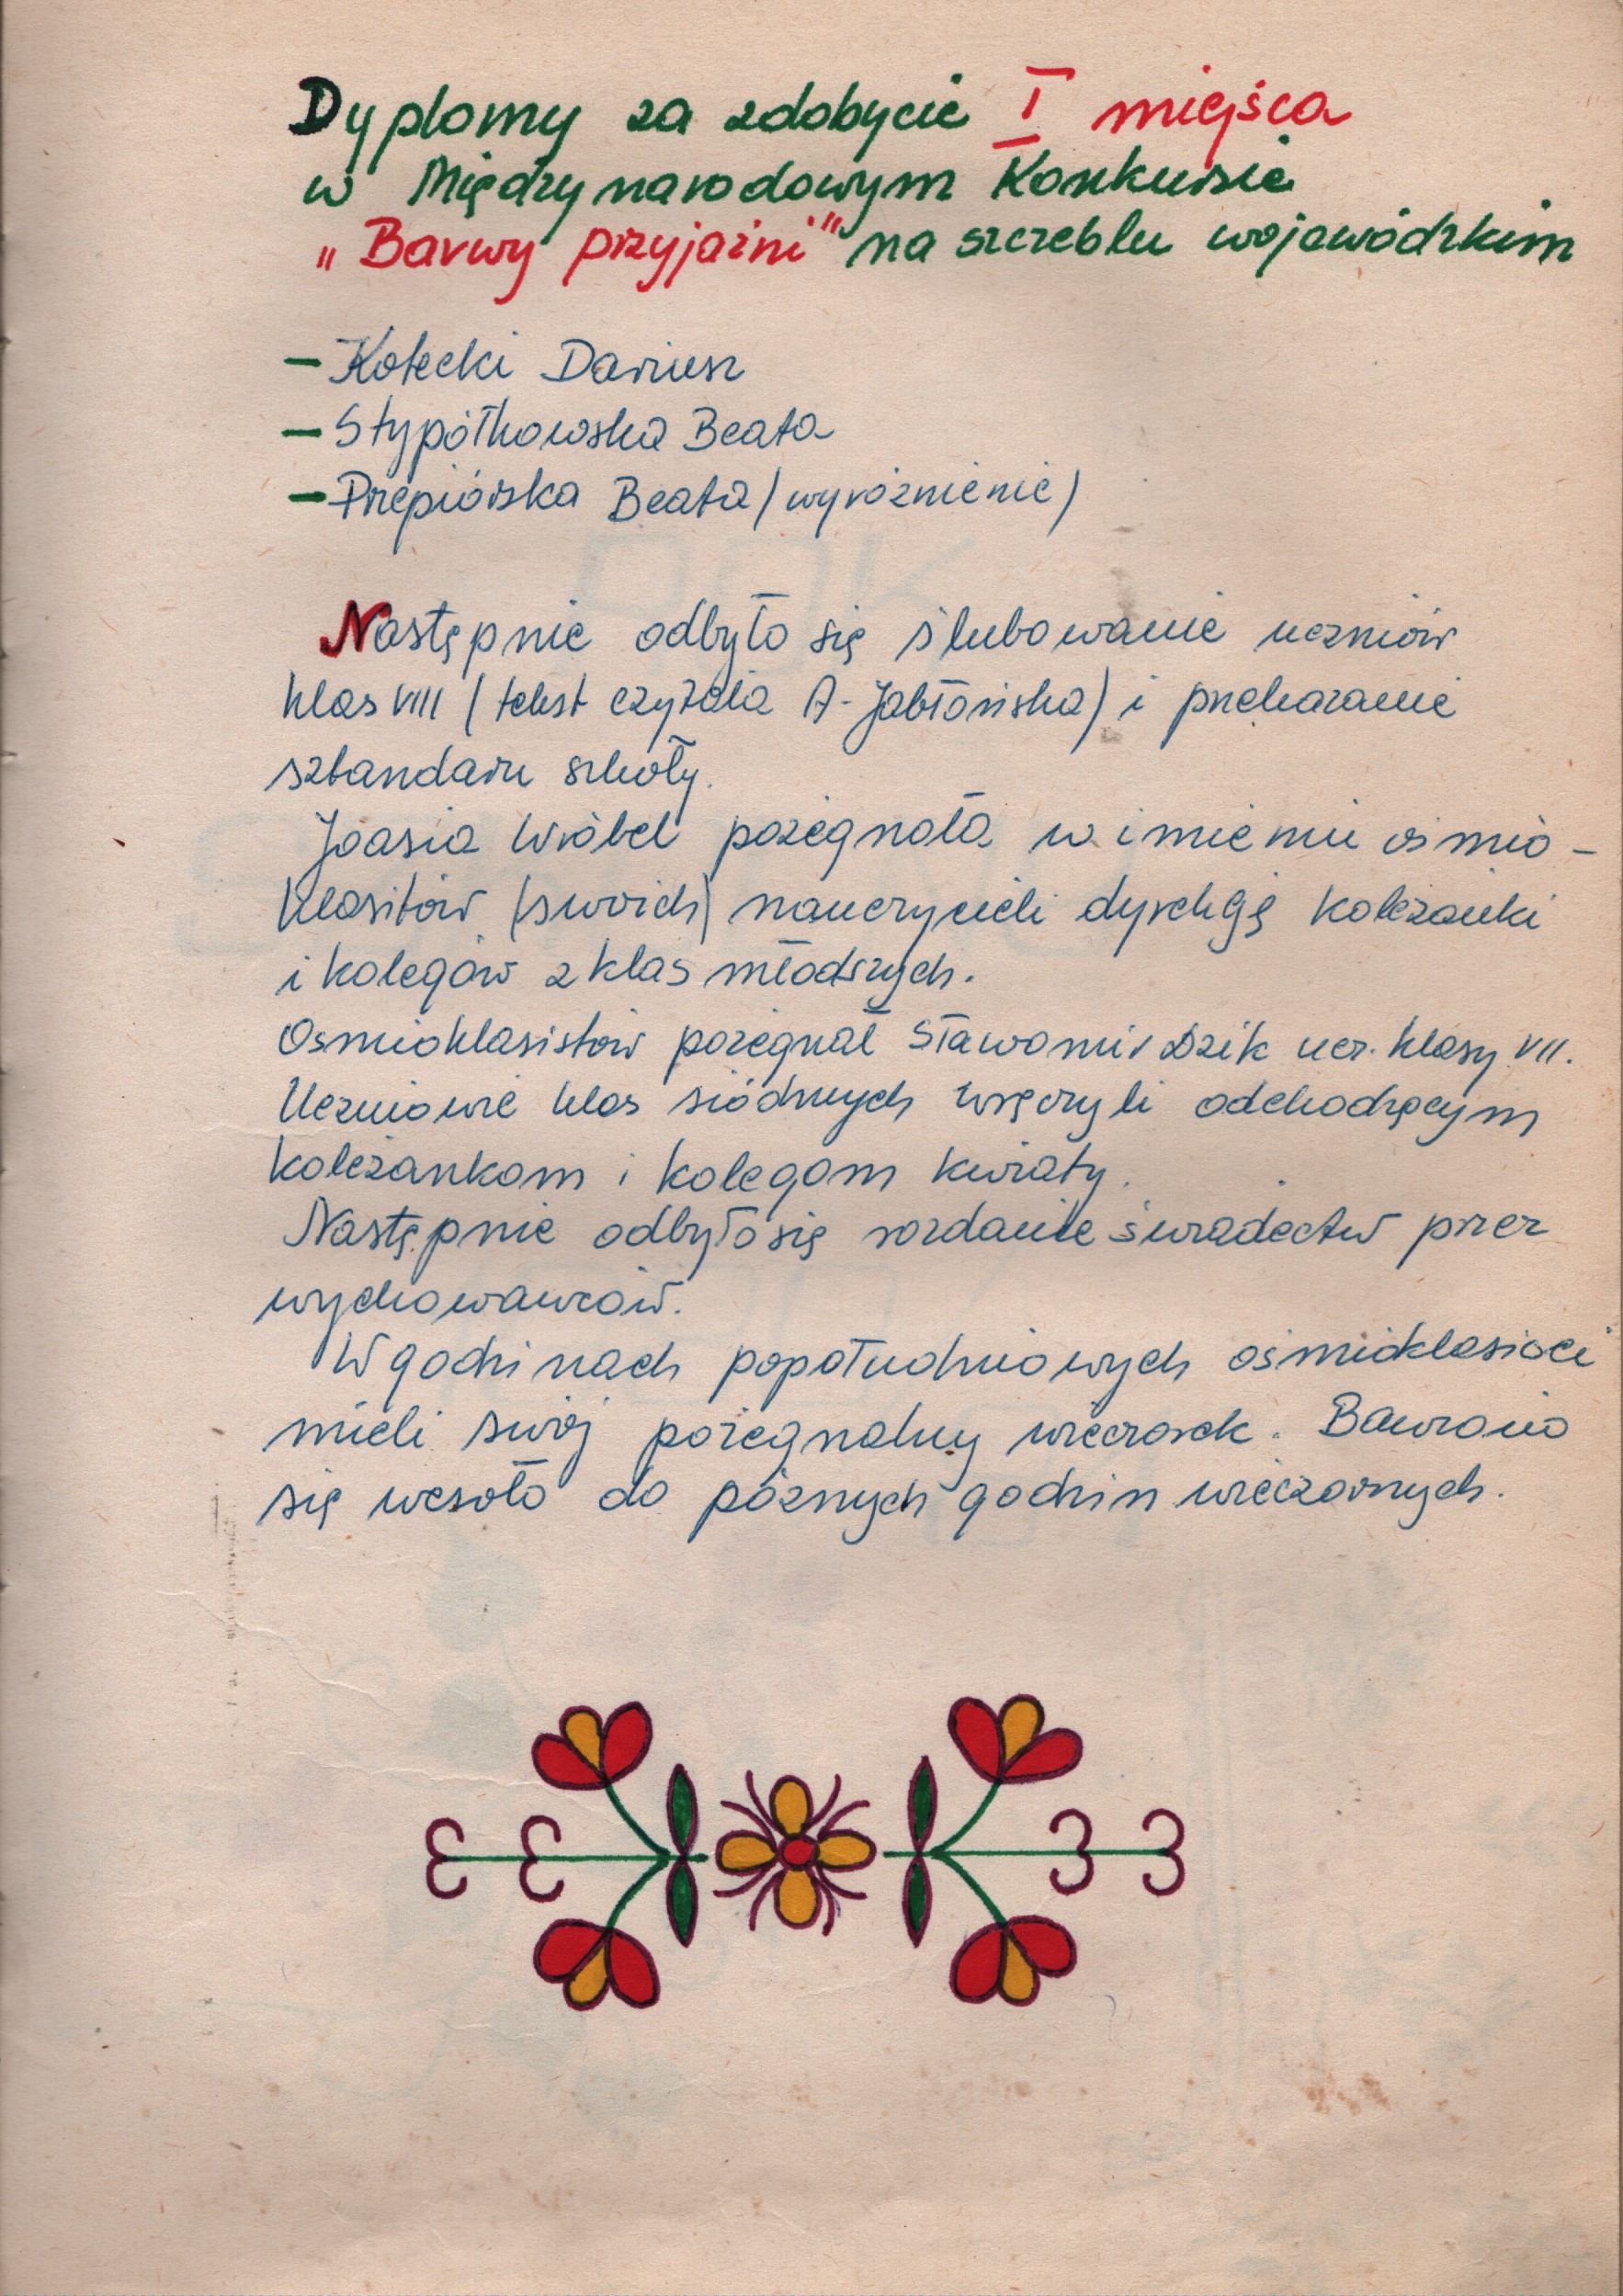 Dyplomy za zdobycie I miejsca
w Międzynarodowym Konkursie
„Barwy przyjaźni" na szczeblu wojewódzkim
– Kotecki Dariusz
– Stypółkowska Beata
– Przepiórska Beata (wyróżnienie)
Następnie odbyło się ślubowanie uczniów
klas VIII (tekst czytała A. Jabłońska) i przekazanie
sztandaru szkoły.
Joasia Wróbel pożegnała w imieniu ośmio-
klasitów (swoich) nauczycieli dyrekcję koleżanki
i kolegów z klas młodszych.
Osmioklasistów pożegnał Sławomir Dzik ucz. klasy VII.
Uczniowie klas siódmych wręczyli odchodzącym
koleżankom i kolegom kwiaty.
Następnie odbyło się rozdanie świadectw przez
wychowawców.
W godzinach popołudniowych ośmioklasiści
mieli swój pożegnalny wieczorek. Bawiono
się wesoło do późnych godzin wieczornych.